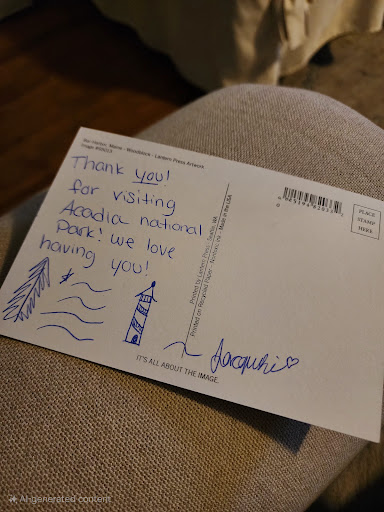 Bar Harbor, Maine - Woodblock - Lantern Press Artwork
Thank you!
for visiting
Acadia national
Park! we love
having you!
IT'S ALL ABOUT THE IMAGE.
Printed by Lantern Press - Seattle, WA
Printed on Recycled Paper - Made in the USA
PLACE
STAMP
HERE
AI-generated content